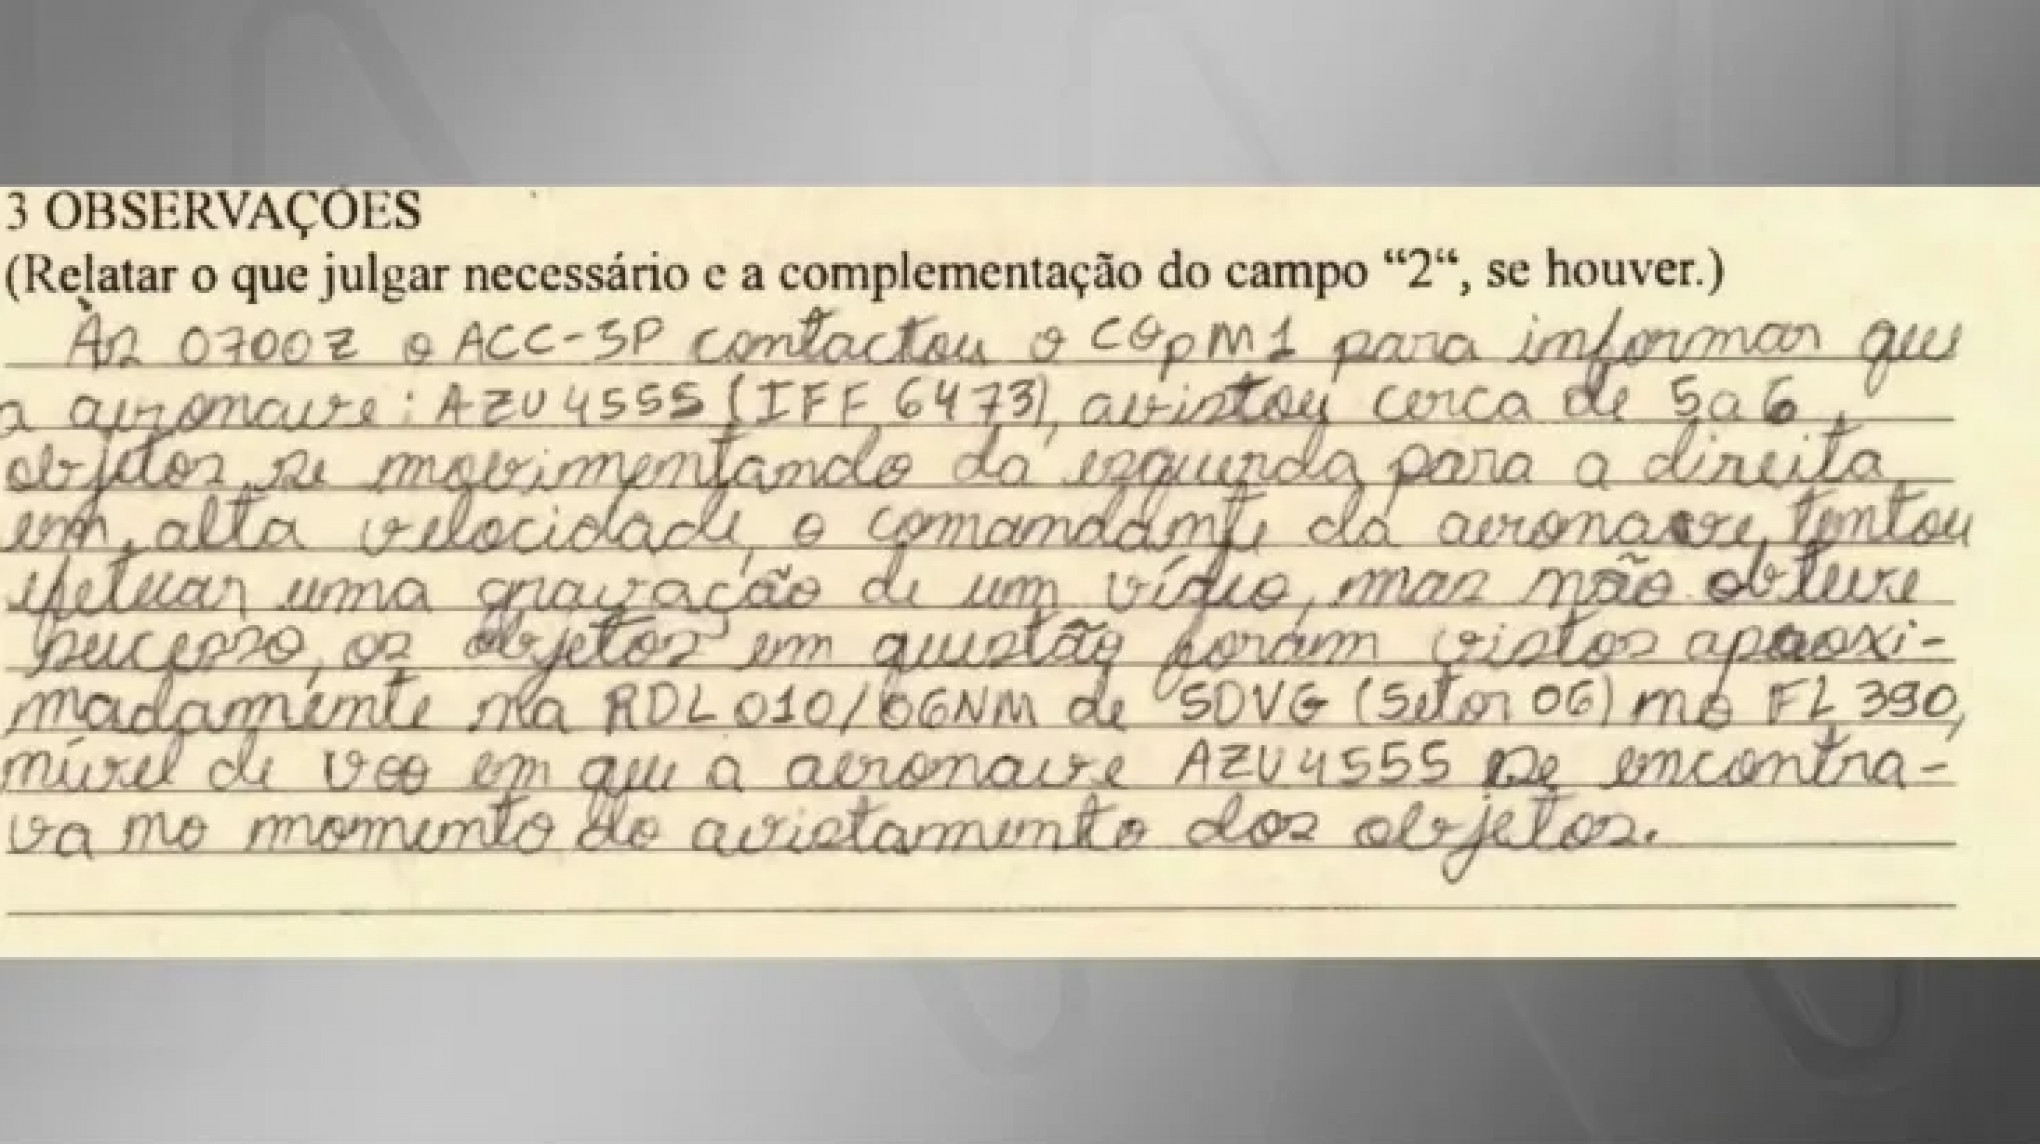 3 OBSERVAÇÕES
(Relatar o que julgar necessário e a complementação do campo “2“, se houver.)
Às 0700Z o ACC-SP contactou o COpM1 para informar que
a aeronave: AZU4555 (IFF 6473), avistou cerca de 5 a 6
objetos se movimentando da esquerda para a direita
em alta velocidade, o comandante da aeronave tentou
efetuar uma gravação de um vídeo, mas não obteve
sucesso, os objetos em questão foram vistos aproxi-
madamente na RDL 010/06NM de SDVG (Setor 06) no FL 390,
nível de voo em que a aeronave AZU4555 se encontra-
va no momento do avistamento dos objetos.